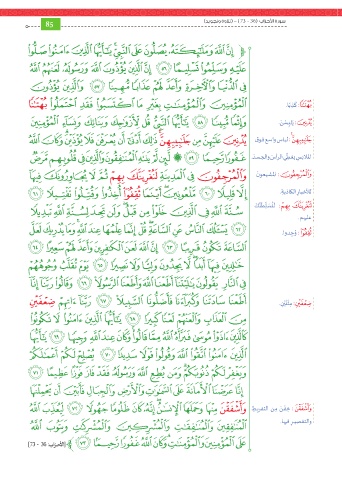 سورة الأحزاب (36 - 73) - (تلاوة وتجويد)
85
﴿ إِنَّ ٱللَّهَ وَمَلَٰٓئِكَتَهُۥ يُصَلُّونَ عَلَى ٱلنَّبِيِّ يَٰٓأَيُّهَا ٱلَّذِينَ ءَامَنُوا۟ صَلُّوا۟
عَلَيْهِ وَسَلِّمُوا۟ تَسْلِيمًا ٥٦ إِنَّ ٱلَّذِينَ يُؤْذُونَ ٱللَّهَ وَرَسُولَهُۥ لَعَنَهُمُ ٱللَّهُ
فِي ٱلدُّنْيَا وَٱلْأٓخِرَةِ وَأَعَدَّ لَهُمْ عَذَابًا مُّهِينًا ٥٧ وَٱلَّذِينَ يُؤْذُونَ
ٱلْمُؤْمِنِينَ وَٱلْمُؤْمِنَٰتِ بِغَيْرِ مَا ٱكْتَسَبُوا۟ فَقَدِ ٱحْتَمَلُوا۟ بُهْتَٰنًا
وَإِثْمًا مُّبِينًا ٥٨ يَٰٓأَيُّهَا ٱلنَّبِيُّ قُل لِّأَزْوَٰجِكَ وَبَنَاتِكَ وَنِسَآءِ ٱلْمُؤْمِنِينَ
يُدْنِينَ عَلَيْهِنَّ مِن جَلَٰبِيبِهِنَّ ذَٰلِكَ أَدْنَىٰٓ أَن يُعْرَفْنَ فَلَا يُؤْذَيْنَ وَكَانَ ٱللَّهُ
غَفُورًا رَّحِيمًا ٥٩ لَّئِن لَّمْ يَنتَهِ ٱلْمُنَٰفِقُونَ وَٱلَّذِينَ فِي قُلُوبِهِم مَّرَضٌ
وَٱلْمُرْجِفُونَ فِي ٱلْمَدِينَةِ لَنُغْرِيَنَّكَ بِهِمْ ثُمَّ لَا يُجَاوِرُونَكَ فِيهَآ
إِلَّا قَلِيلًا ٦٠ مَّلْعُونِينَ أَيْنَمَا ثُقِفُوٓا۟ أُخِذُوا۟ وَقُتِّلُوا۟ تَقْتِيلًا ٦١
سُنَّةَ ٱللَّهِ فِي ٱلَّذِينَ خَلَوْا۟ مِن قَبْلُ وَلَن تَجِدَ لِسُنَّةِ ٱللَّهِ تَبْدِيلًا
٦٢ يَسْـَٔلُكَ ٱلنَّاسُ عَنِ ٱلسَّاعَةِ قُلْ إِنَّمَا عِلْمُهَا عِندَ ٱللَّهِ وَمَا يُدْرِيكَ لَعَلَّ
ٱلسَّاعَةَ تَكُونُ قَرِيبًا ٦٣ إِنَّ ٱللَّهَ لَعَنَ ٱلْكَٰفِرِينَ وَأَعَدَّ لَهُمْ سَعِيرًا ٦٤
خَٰلِدِينَ فِيهَآ أَبَدًا لَّا يَجِدُونَ وَلِيًّا وَلَا نَصِيرًا ٦٥ يَوْمَ تُقَلَّبُ وُجُوهُهُمْ
فِي ٱلنَّارِ يَقُولُونَ يَٰلَيْتَنَآ أَطَعْنَا ٱللَّهَ وَأَطَعْنَا ٱلرَّسُولَا۠ ٦٦ وَقَالُوا۟ رَبَّنَآ إِنَّآ
أَطَعْنَا سَادَتَنَا وَكُبَرَآءَنَا فَأَضَلُّونَا ٱلسَّبِيلَا۠ ٦٧ رَبَّنَآ ءَاتِهِمْ ضِعْفَيْنِ
مِنَ ٱلْعَذَابِ وَٱلْعَنْهُمْ لَعْنًا كَبِيرًا ٦٨ يَٰٓأَيُّهَا ٱلَّذِينَ ءَامَنُوا۟ لَا تَكُونُوا۟
كَٱلَّذِينَ ءَاذَوْا۟ مُوسَىٰ فَبَرَّأَهُ ٱللَّهُ مِمَّا قَالُوا۟ وَكَانَ عِندَ ٱللَّهِ وَجِيهًا ٦٩ يَٰٓأَيُّهَا
ٱلَّذِينَ ءَامَنُوا۟ ٱتَّقُوا۟ ٱللَّهَ وَقُولُوا۟ قَوْلًا سَدِيدًا ٧٠ يُصْلِحْ لَكُمْ أَعْمَٰلَكُمْ
وَيَغْفِرْ لَكُمْ ذُنُوبَكُمْ وَمَن يُطِعِ ٱللَّهَ وَرَسُولَهُۥ فَقَدْ فَازَ فَوْزًا عَظِيمًا ٧١
إِنَّا عَرَضْنَا ٱلْأَمَانَةَ عَلَى ٱلسَّمَٰوَٰتِ وَٱلْأَرْضِ وَٱلْجِبَالِ فَأَبَيْنَ أَن يَحْمِلْنَهَا
وَأَشْفَقْنَ مِنْهَا وَحَمَلَهَا ٱلْإِنسَٰنُ إِنَّهُۥ كَانَ ظَلُومًا جَهُولًا ٧٢ لِّيُعَذِّبَ ٱللَّهُ
ٱلْمُنَٰفِقِينَ وَٱلْمُنَٰفِقَٰتِ وَٱلْمُشْرِكِينَ وَٱلْمُشْرِكَٰتِ وَيَتُوبَ ٱللَّهُ
عَلَى ٱلْمُؤْمِنِينَ وَٱلْمُؤْمِنَٰتِ وَكَانَ ٱللَّهُ غَفُورًا رَّحِيمًا ٧٣ ﴾ [الأحزاب: 36 - 73]
بُهْتَٰنًا: كذبًا.
يُدْنِينَ: يُرخينَ.
جَلَٰبِيبِهِنَّ: لباس واسع فوق
الملابس يغطي الرأس والجسد.
وَٱلْمُرْجِفُونَ: المشيعون
للأخبار الكاذبة.
لَنُغْرِيَنَّكَ بِهِمْ: لنسلطنَّك
عليهم.
ثُقِفُوٓا۟: وُجدوا.
ضِعْفَيْنِ: مثلين.
وَأَشْفَقْنَ: خفن من التفريط
والتقصير فيها.